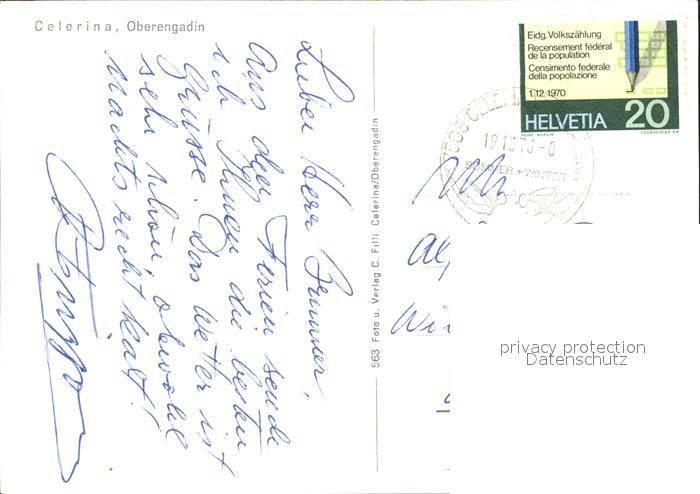 Celerina, Oberengadin
Lieber Herr Brunner,
Aus den Ferien sende
ich Ihnen die besten
Grüsse. Das Wetter ist
sehr schön, obwohl
nachts recht kalt!
563 Foto u. Verlag C. Filli, Celerina/Oberengadin
Eidg. Volkszählung
Recensement fédéral
de la population
Censimento federale
della popolazione
1.12.1970
HELVETIA 20
COURVOISIER SA
CELERINA
19.10.70-8
SOMMER+WINTER
privacy protection
Datenschutz